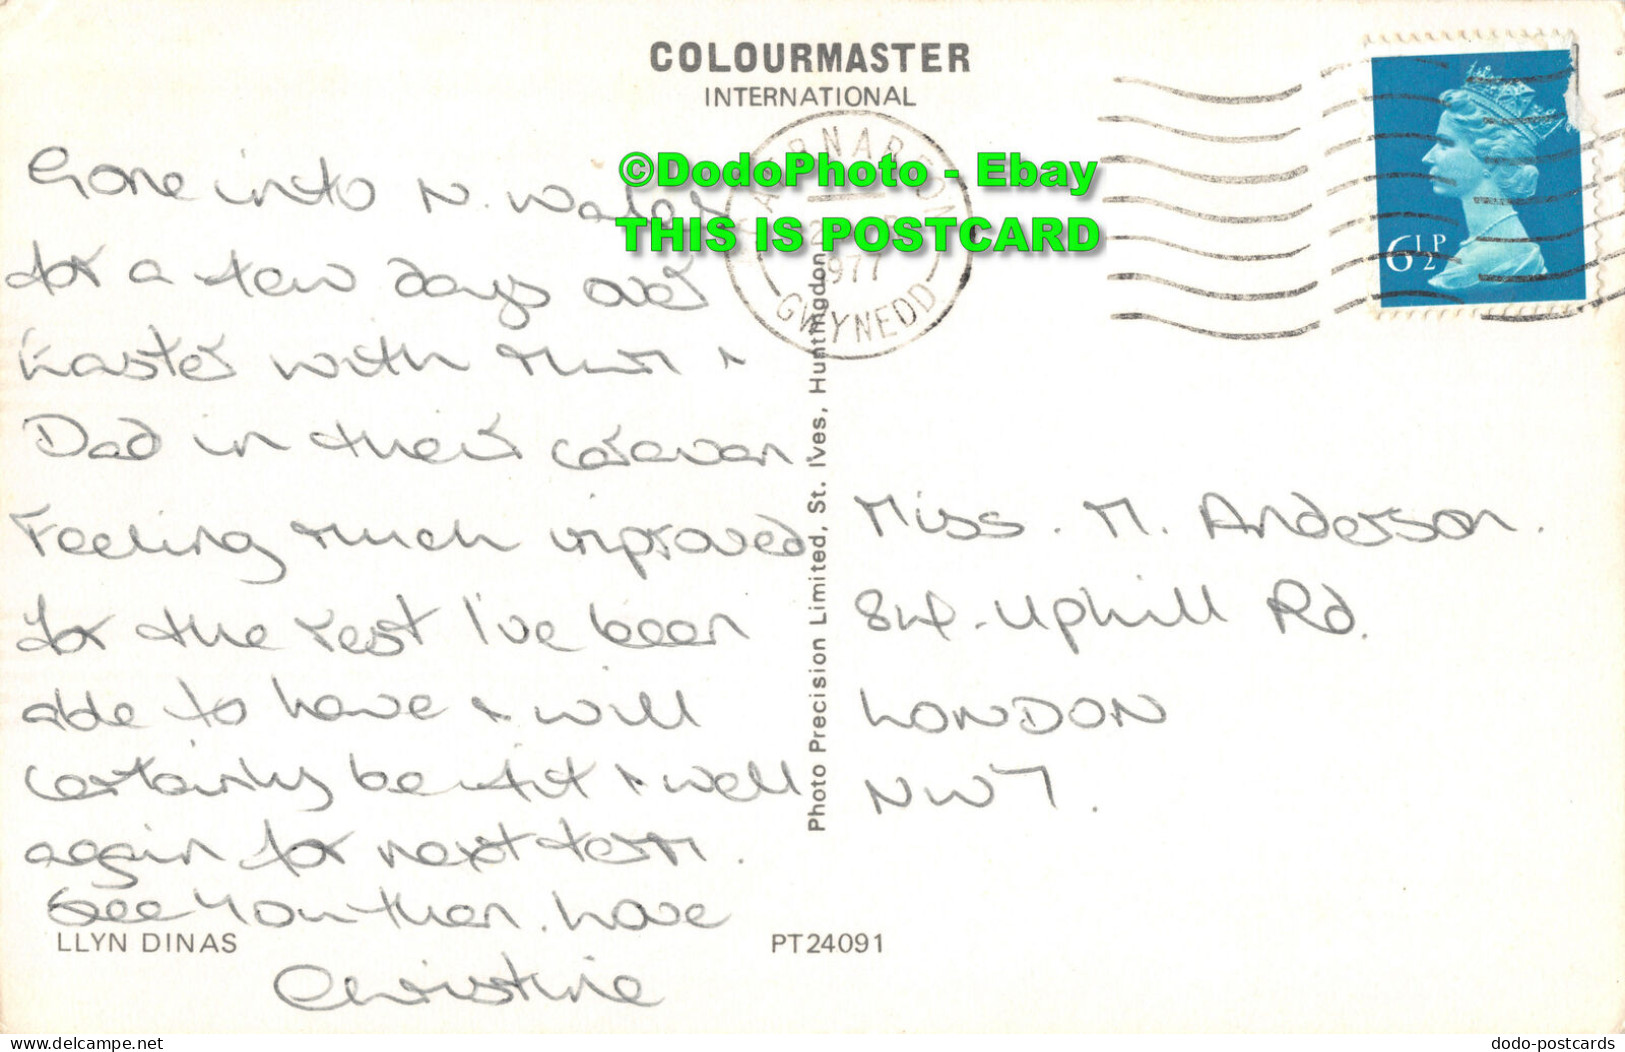 COLOURMASTER
INTERNATIONAL
Gone into N. Wales
for a few days over
Easter with Mum &
Dad in their caravan.
Feeling much improved
for the rest I've been
able to have & will
certainly be fit & well
again for next term.
See you then. Love
Christine
LLYN DINAS
PT24091
Photo Precision Limited, St. Ives, Huntingdon
CAERNARFON
1977
GWYNEDD
6½P
Miss. M. Anderson.
84. Uphill Rd.
LONDON
NW7.
©DodoPhoto - Ebay
THIS IS POSTCARD
www.delcampe.net
dodo-postcards